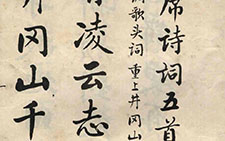 席诗词五首
歌头词 重上井冈山
凌云志
井冈山千